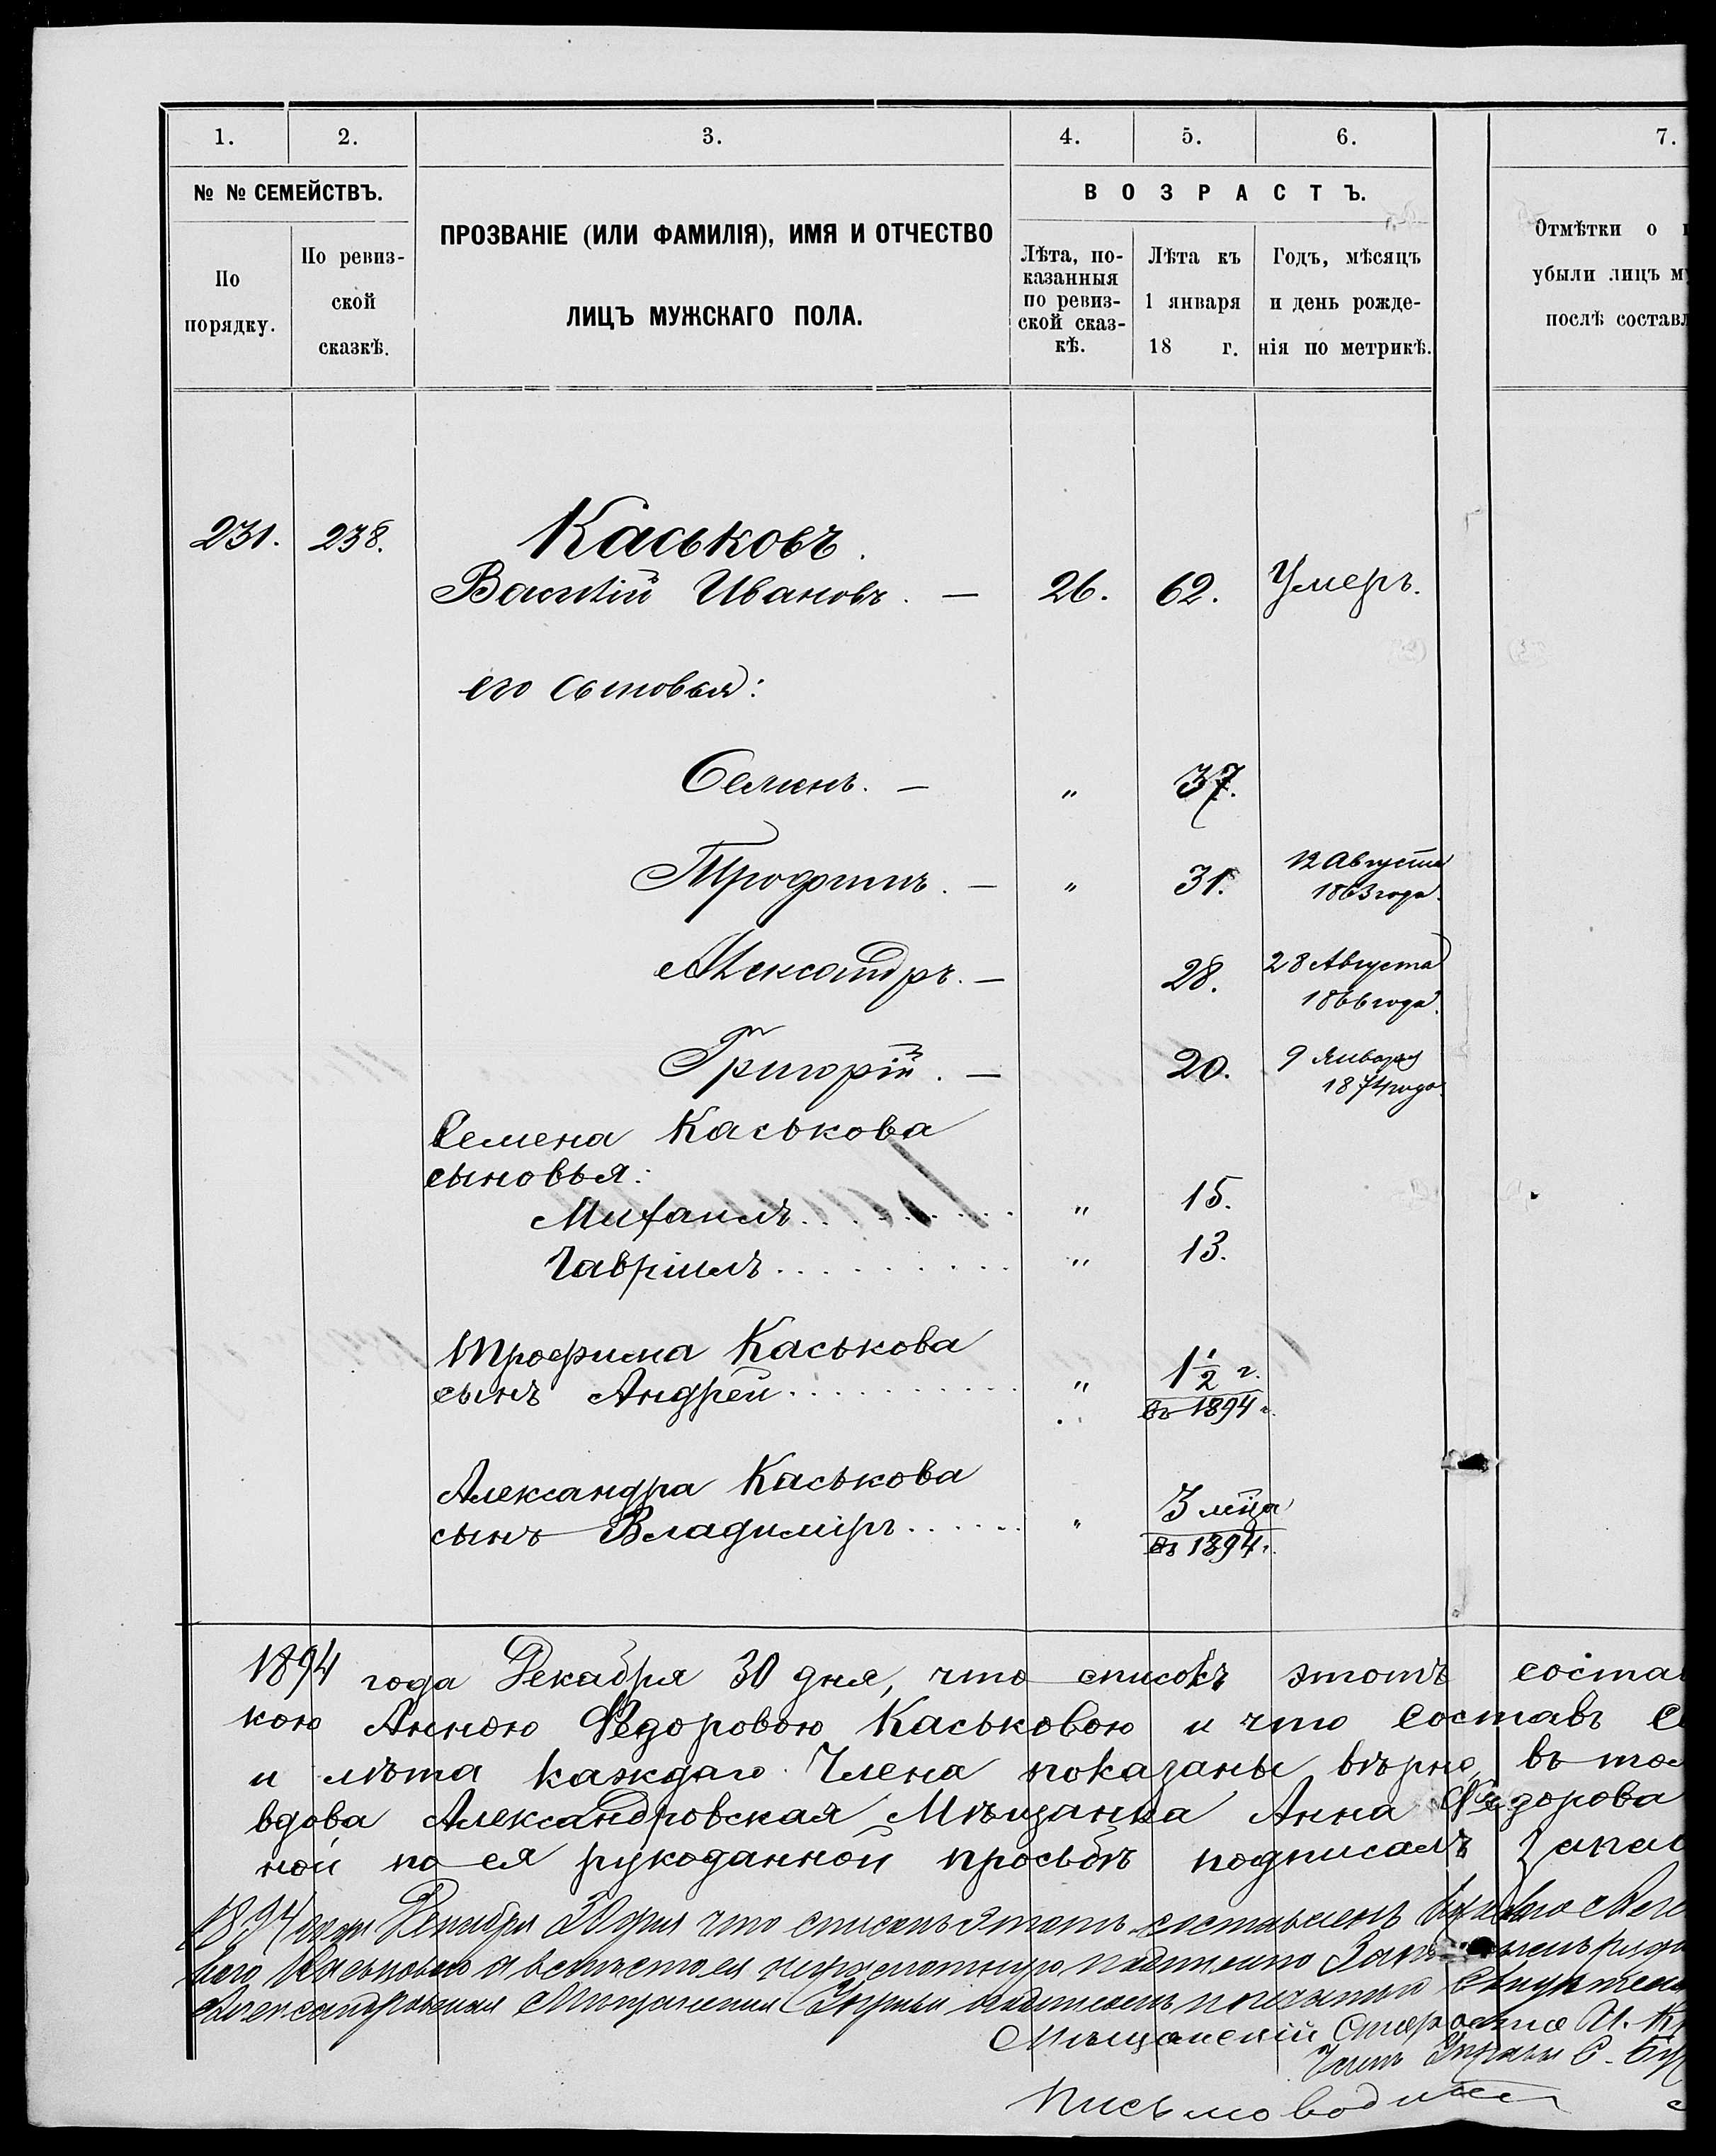 1. 2. 3. 4. 5. 6. 7.
№ № СЕМЕЙСТВЪ.
По порядку.
По ревиз-
ской
сказкѣ.
ПРОЗВАНІЕ (ИЛИ ФАМИЛІЯ), ИМЯ И ОТЧЕСТВО
ЛИЦЪ МУЖСКАГО ПОЛА.
ВОЗРАСТЪ.
Лѣта, по-
казанныя
по ревиз-
ской сказ-
кѣ.
Лѣта къ
1 января
18 г.
Годъ, мѣсяцъ
и день рожде-
нія по метрикѣ.
Отмѣтки о
убыли лицъ
послѣ
231. 238. Каськовъ.
Василій Ивановъ. — 26. 62. Умеръ.
его сыновья:
Семенъ. — " 37.
Трофимъ. — " 31. 12 Августа
1863 года.
Александръ. — 28. 28 Августа
1866 года.
Григорій. — 20. 9 Января
1874 года.
Семена Каськова
сыновья:
Михаилъ. . . . . . . . . " 15.
Гавріилъ. . . . . . . . . " 13.
Трофима Каськова
сынъ Андрей. . . . . . . . . . " 1½ г.
въ 1894 г.
Александра Каськова
сынъ Владиміръ. . . . . . " 3 мѣца
въ 1894 г.
1894 года Декабря 30 дня, что списокъ этотъ
кою Анною Федоровою Каськовою и что составъ
и лѣта каждаго Члена показаны вѣрно, въ
вдова Александровская Мѣщанка Анна Федорова
ной по ея рукоданной просьбѣ подписалъ
1894 года Декабря 30 дня что списокъ этотъ составленъ
Александровская Мѣщанская Управа
Мѣщанскій Староста И.
Членъ Управы С.
Письмоводитель